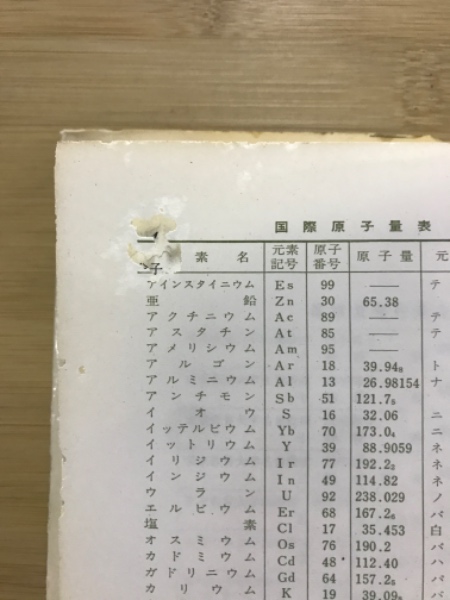 国際原子量表
子 素名 元素記号 原子番号 原子量 元
アインスタイニウム Es 99 —— テ
亜鉛 Zn 30 65.38
アクチニウム Ac 89 —— テ
アスタチン At 85 —— テ
アメリシウム Am 95 ——
アルゴン Ar 18 39.94₈ ト
アルミニウム Al 13 26.98154 ナ
アンチモン Sb 51 121.7₅ ニ
イオウ S 16 32.06 ニ
イッテルビウム Yb 70 173.0₄ ニ
イットリウム Y 39 88.9059 ネ
イリジウム Ir 77 192.2₂ ネ
インジウム In 49 114.82 ネ
ウラン U 92 238.029 ノ
エルビウム Er 68 167.2₆ バ
塩素 Cl 17 35.453 白
オスミウム Os 76 190.2 バ
カドミウム Cd 48 112.40 ハ
ガドリニウム Gd 64 157.2₅ パ
カリウム K 19 39.09₈ バ